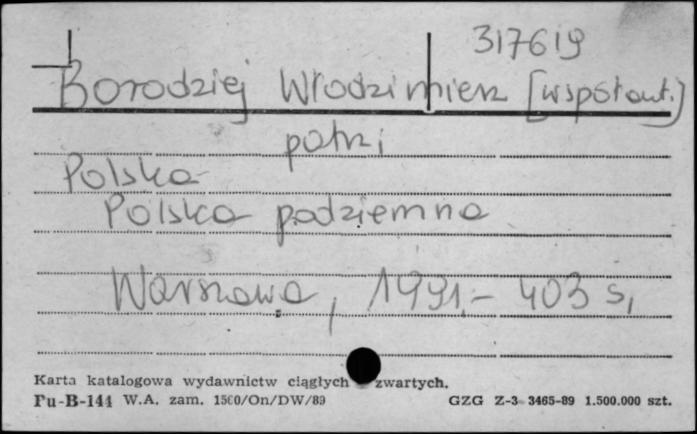 317619
Borodziej Włodzimierz [współaut.]
patrz
Polska
Polska podziemna
Warszawa, 1991,- 403 s,
Karta katalogowa wydawnictw ciągłych zwartych.
Pu-B-144 W.A. zam. 1500/On/DW/89 GZG Z-3 3465-89 1.500.000 szt.